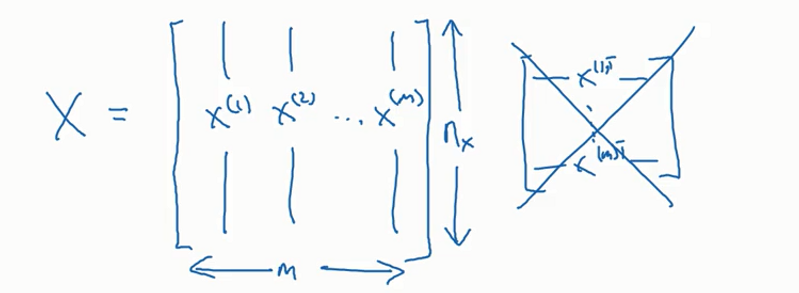 X = [ x^(1) x^(2) ... x^(m) ] n_x
m
x^(1)T
⋮
x^(m)T